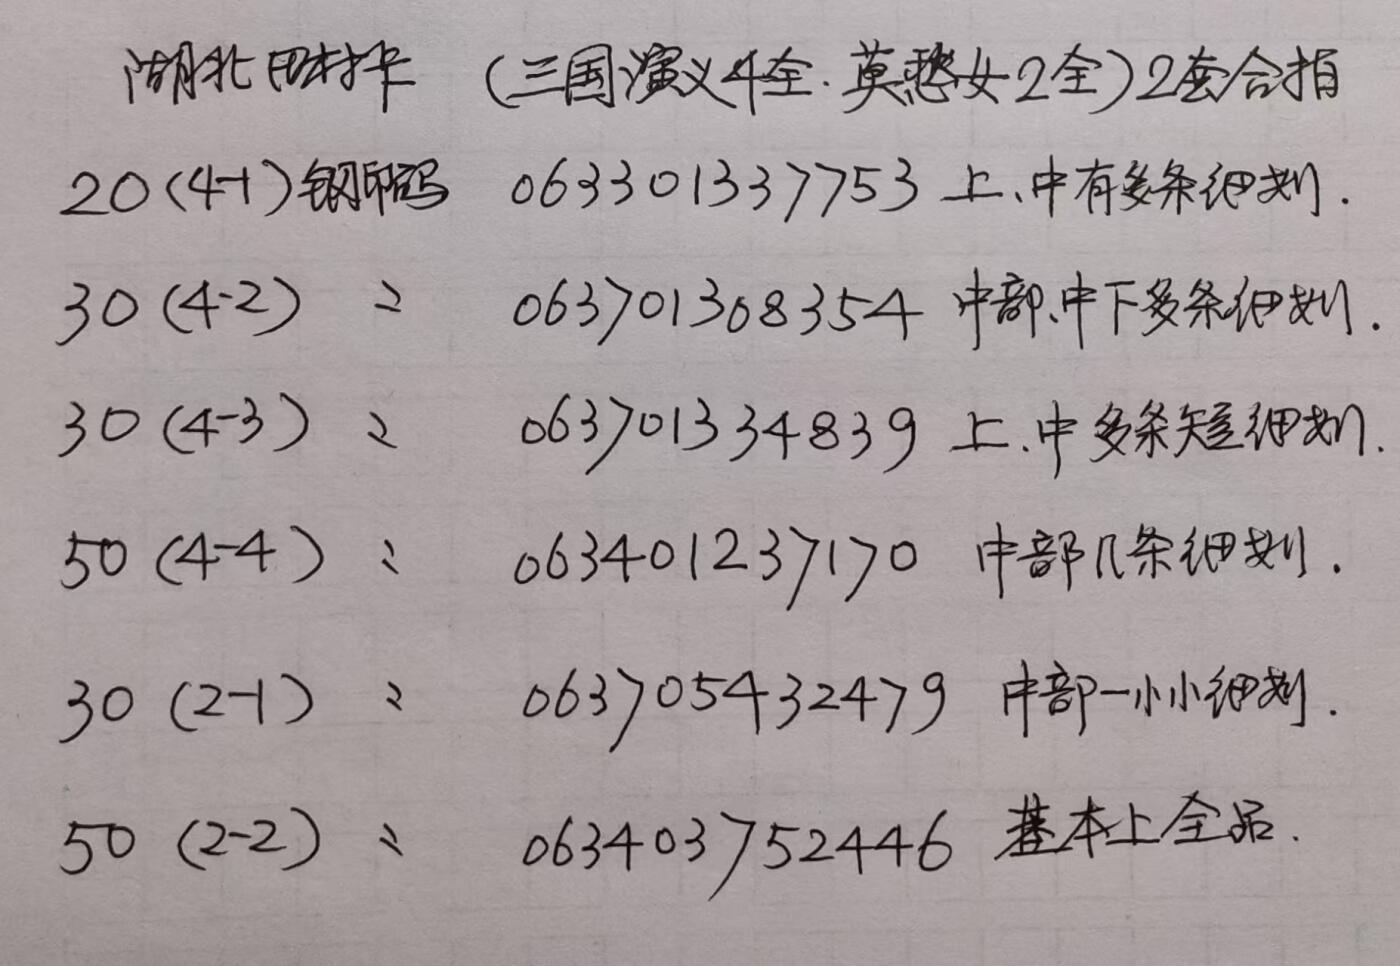 湖北田村卡 (三国演义4全.莫愁女2全)2套合捐
20(4-1)钢印码 063301337753 上、中有多条细划.
30(4-2) 〃 063701308354 中部、中下多条细划.
30(4-3) 〃 063701334839 上、中多条短细划.
50(4-4) 〃 063401237170 中部几条细划.
30(2-1) 〃 063705432479 中部一小小细划.
50(2-2) 〃 063403752446 基本上全品.